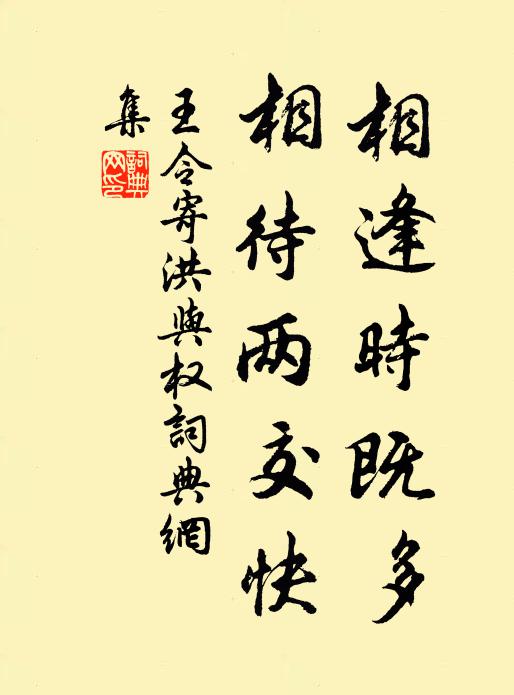 相逢時既多
相待两交快
王令寄洪與权詞典網
集
詞典网印